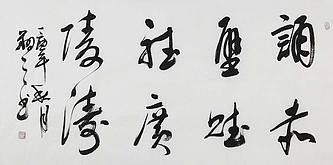 誦赤
壁賦
聽廣
陵濤
年秋月
書